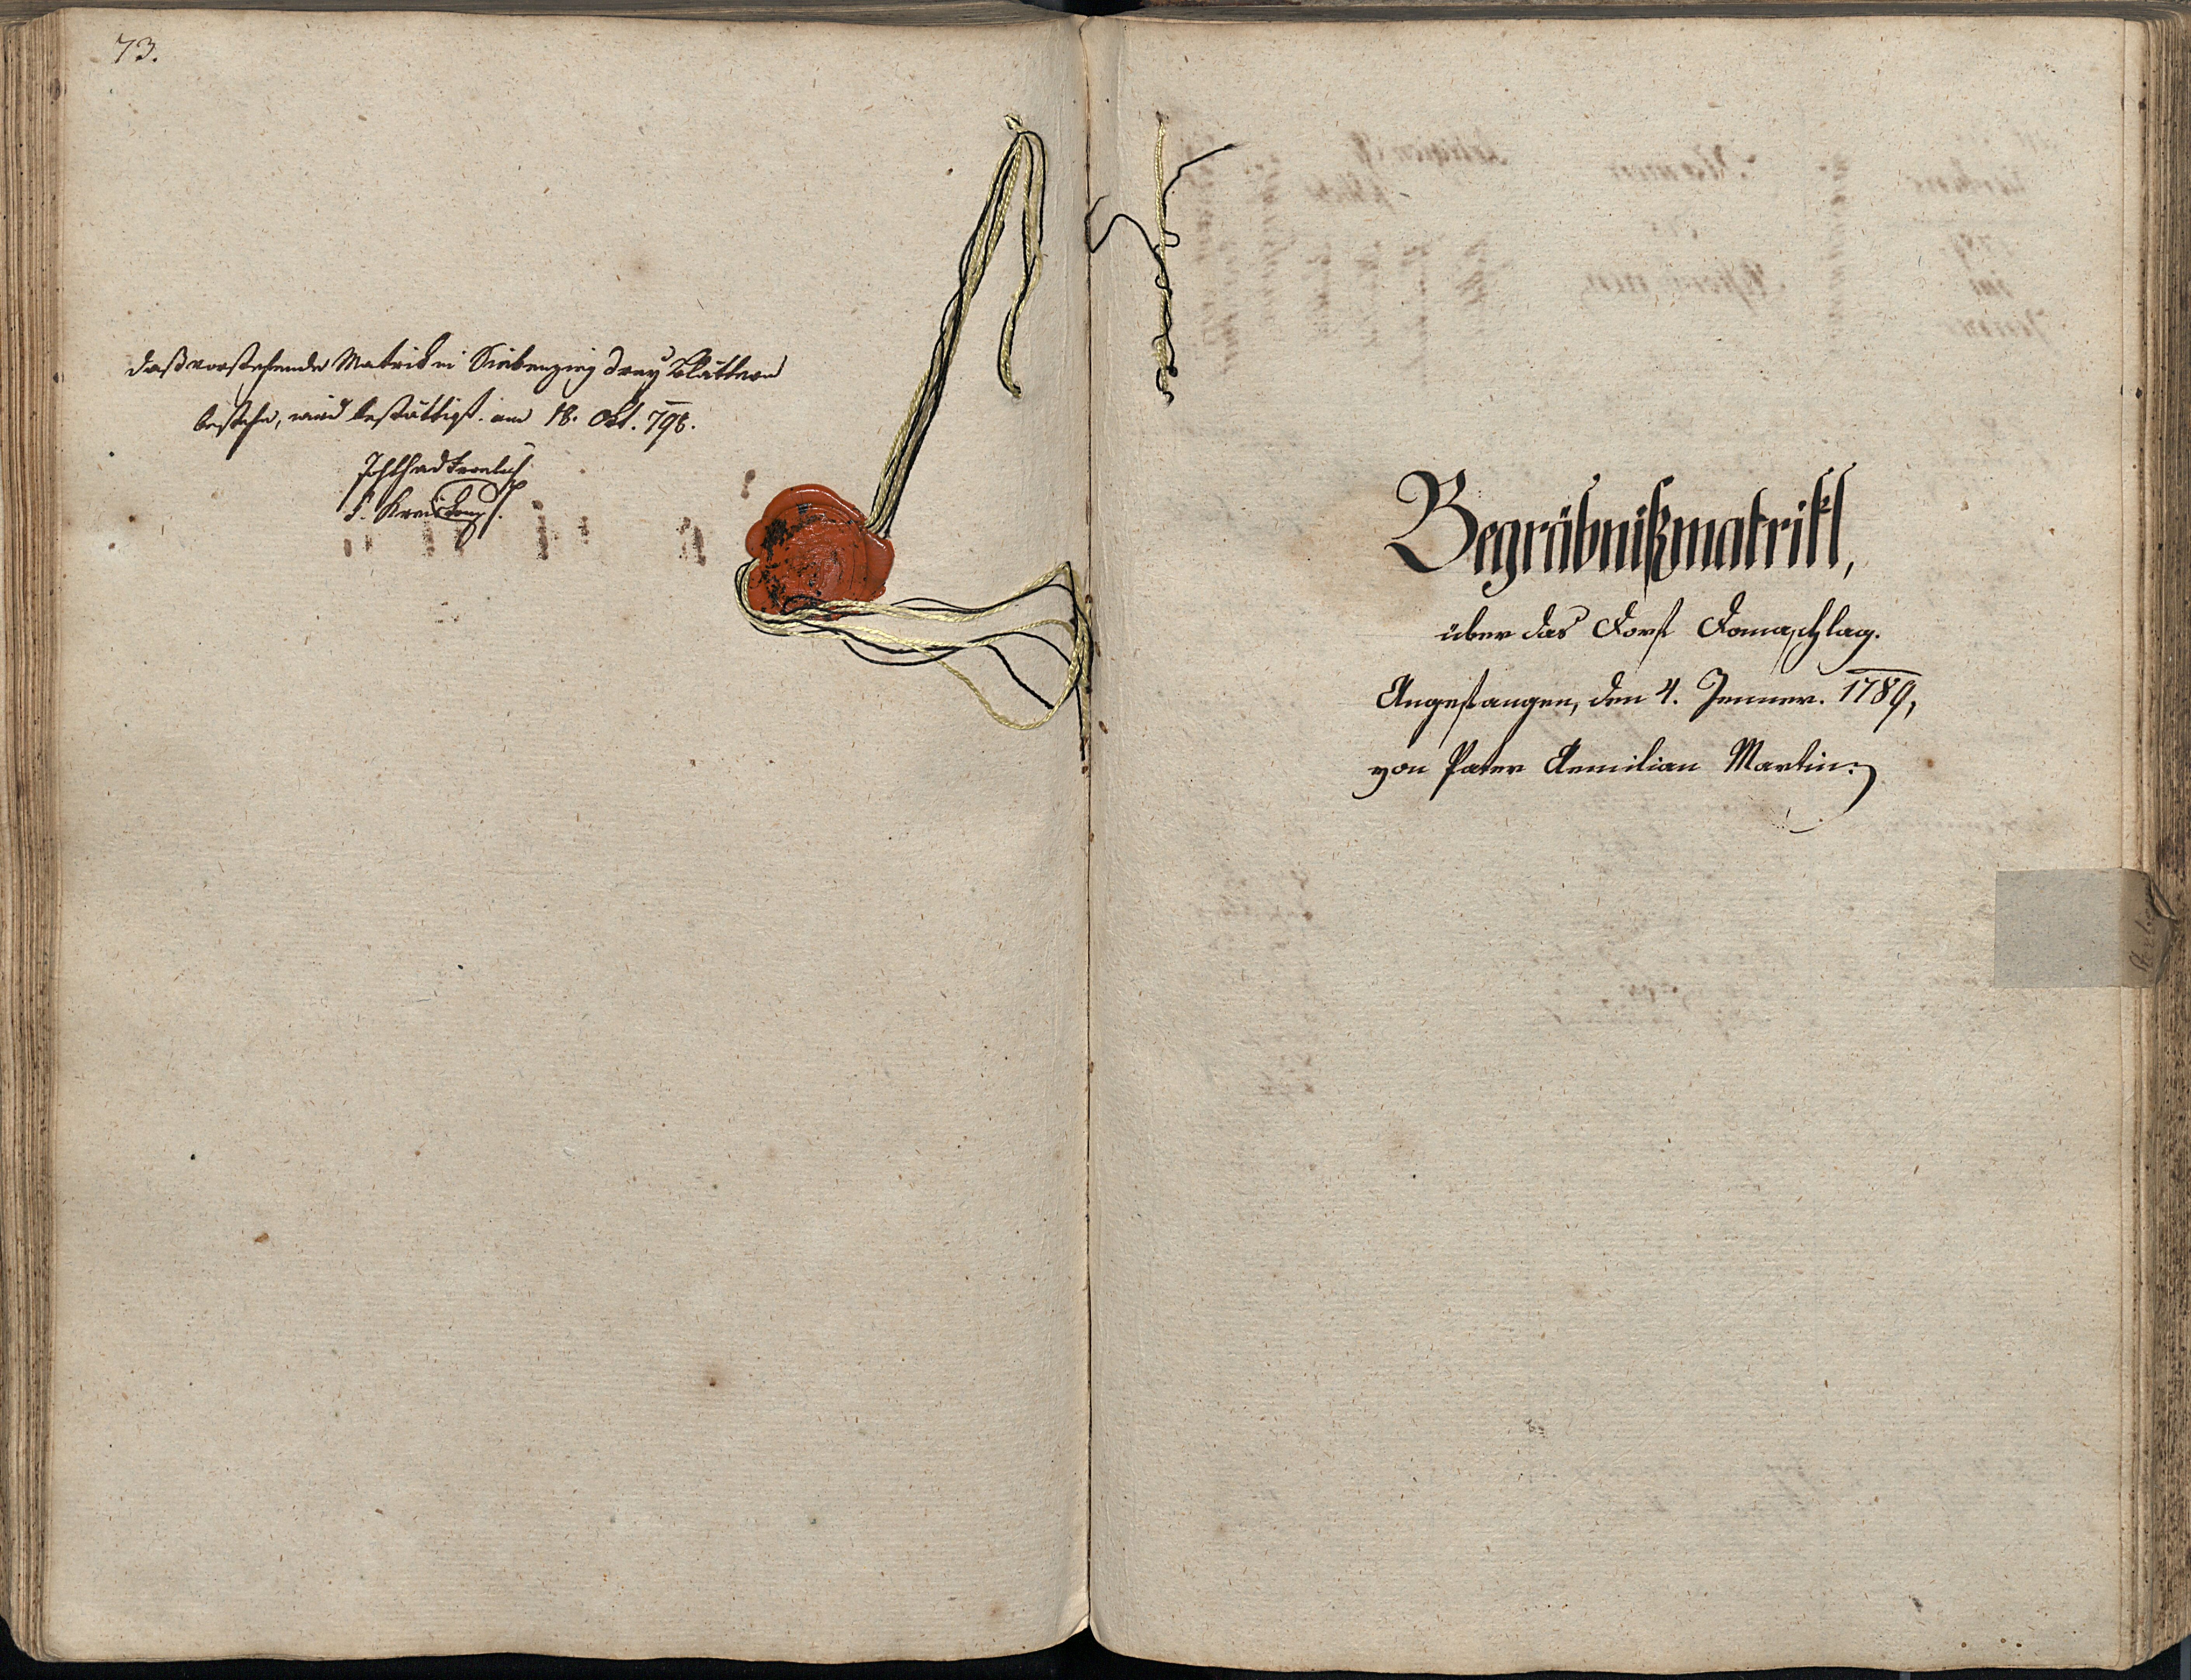 73.
daß vorstehende Matrik in Siebenzig drey Blättern
bestehe, wird bestättigt. am 18. Okt. 798.
Begräbnißmatrikl,
über das Dorf Domaschlag.
Angefangen, den 4. Jenner. 1789,
von Pater Aemilian Martin.